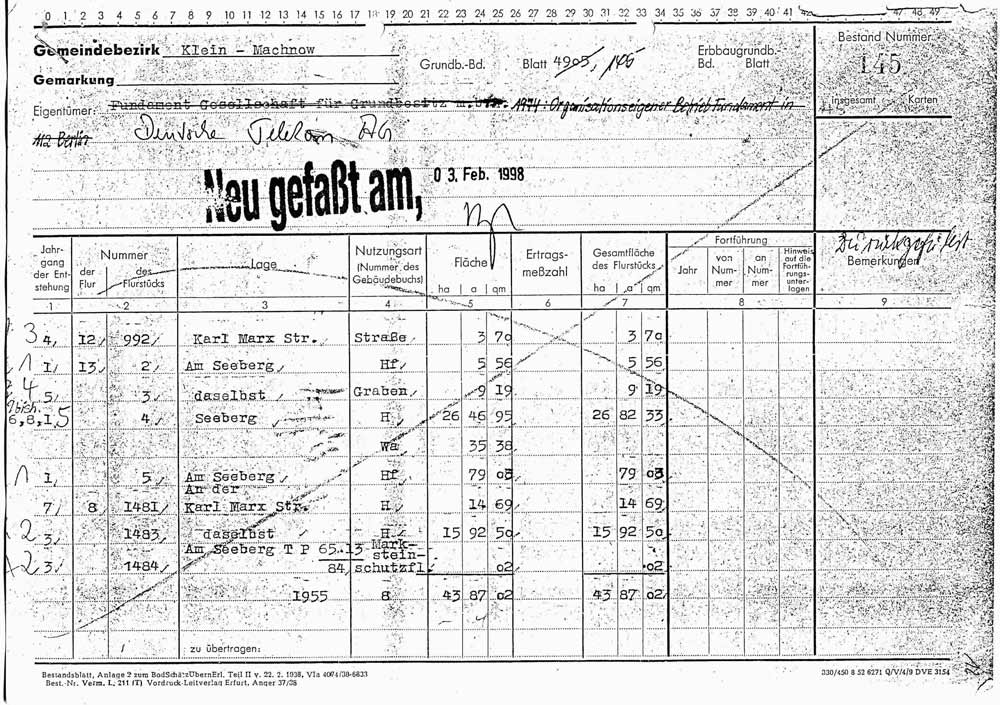 0 1 2 3 4 5 6 7 8 9 10 11 12 13 14 15 16 17 18 19 20 21 22 23 24 25 26 27 28 29 30 31 32 33 34 35 36 37 38 39 40 41 47 48 49
Gemeindebezirk Klein - Machnow
Grundb.-Bd. Blatt 4905, 145
Erbbaugrundb.
Bd. Blatt
Bestand Nummer
145
Insgesamt Karten
Gemarkung
Eigentümer: Fundament Gesellschaft für Grundbesitz m.b.H. 1974: Organisationseigener Betrieb Fundament in
112 Berlin Deutsche Telekom AG
Neu gefaßt am, 03. Feb. 1998
Jahr-
gang
der Ent-
stehung
Nummer
der
Flur
des
Flurstücks
Lage
Nutzungsart
(Nummer des
Gebäudebuchs)
Fläche
ha a qm
Ertrags-
meßzahl
Gesamtfläche
des Flurstücks
ha a qm
Fortführung
Jahr
von
Num-
mer
an
Num-
mer
Hinweis
auf die
Fortfüh-
rungs-
unter-
lagen
Zurückgeführt
Bemerkungen
1 2 3 4 5 6 7 8 9
3 4, 12, 992, Karl Marx Str. Straße, 3 70 3 70
1 1, 13, 2, Am Seeberg, Hf, 5 56 5 56
4 5, 3, daselbst Graben, 9 19 9 19
6,8,1,5 4, Seeberg H, 26 46 95 26 82 33
Wa 35 38
1 1, 5, Am Seeberg, Hf, 79 03 79 03
An der
7, 8, 1481, Karl Marx Str. H, 14 69 14 69
2 3, 1483, daselbst H, 15 92 50 15 92 50
Am Seeberg T P 65.13 Mark-
stein-
2 3, 1484, 84, schutzfl. 02 02
1955 8 43 87 02 43 87 02
zu übertragen:
Bestandsblatt, Anlage 2 zum BodSchätzÜbernErl. Teil II v. 22. 2. 1938, VIa 4074/38-6833
Best.-Nr. Verm. I, 211 (T) Vordruck-Leitverlag Erfurt, Anger 37/38
330/450 8 52 6271 Q/V/4/9 DVE 3154